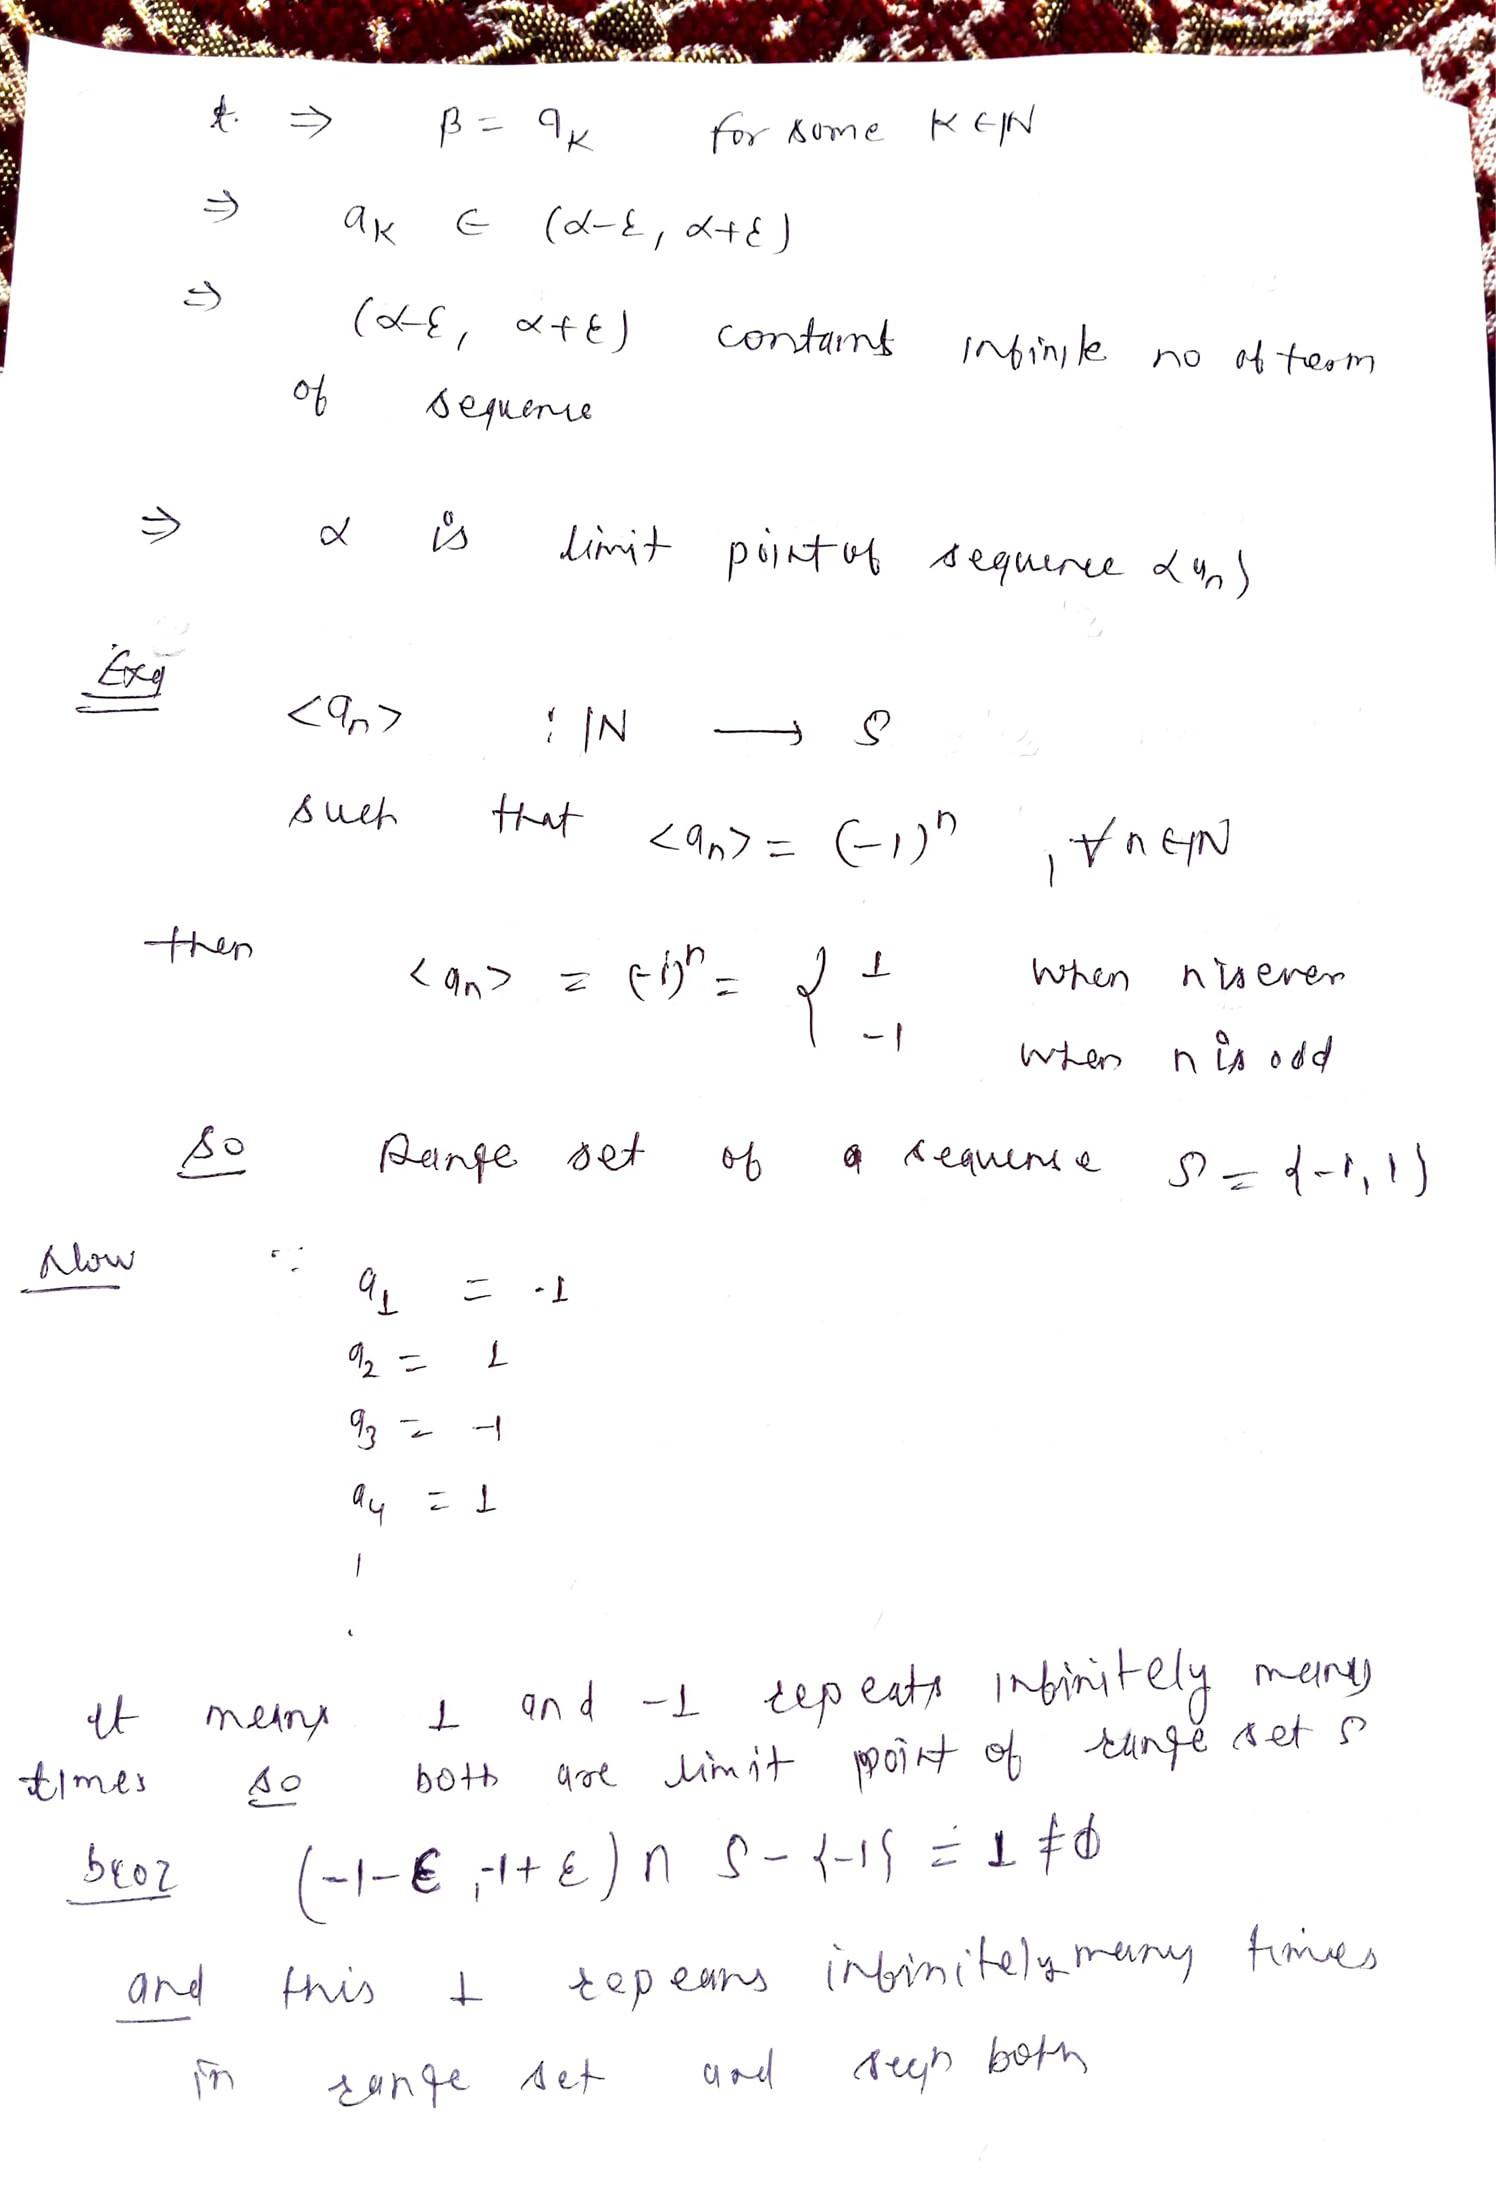 ⇒ β = aK for some K ∈ IN
⇒ aK ∈ (α-ε, α+ε)
⇒ (α-ε, α+ε) contains infinite no of term
of sequence
⇒ α is limit point of sequence <an>
Exa
<an> : IN → S
such that <an> = (-1)ⁿ , ∀ n ∈ IN
then <an> = (-1)ⁿ = { 1 when n is even
-1 when n is odd
So Range set of a sequence S = {-1, 1}
Now ∵
a1 = -1
a2 = 1
a3 = -1
a4 = 1
It means 1 and -1 repeats infinitely many
times so both are limit point of range set S
bcoz (-1-ε, -1+ε) ∩ S - {-1} = 1 ≠ ϕ
and this 1 repeans infinitely many times
in range set and seqn both